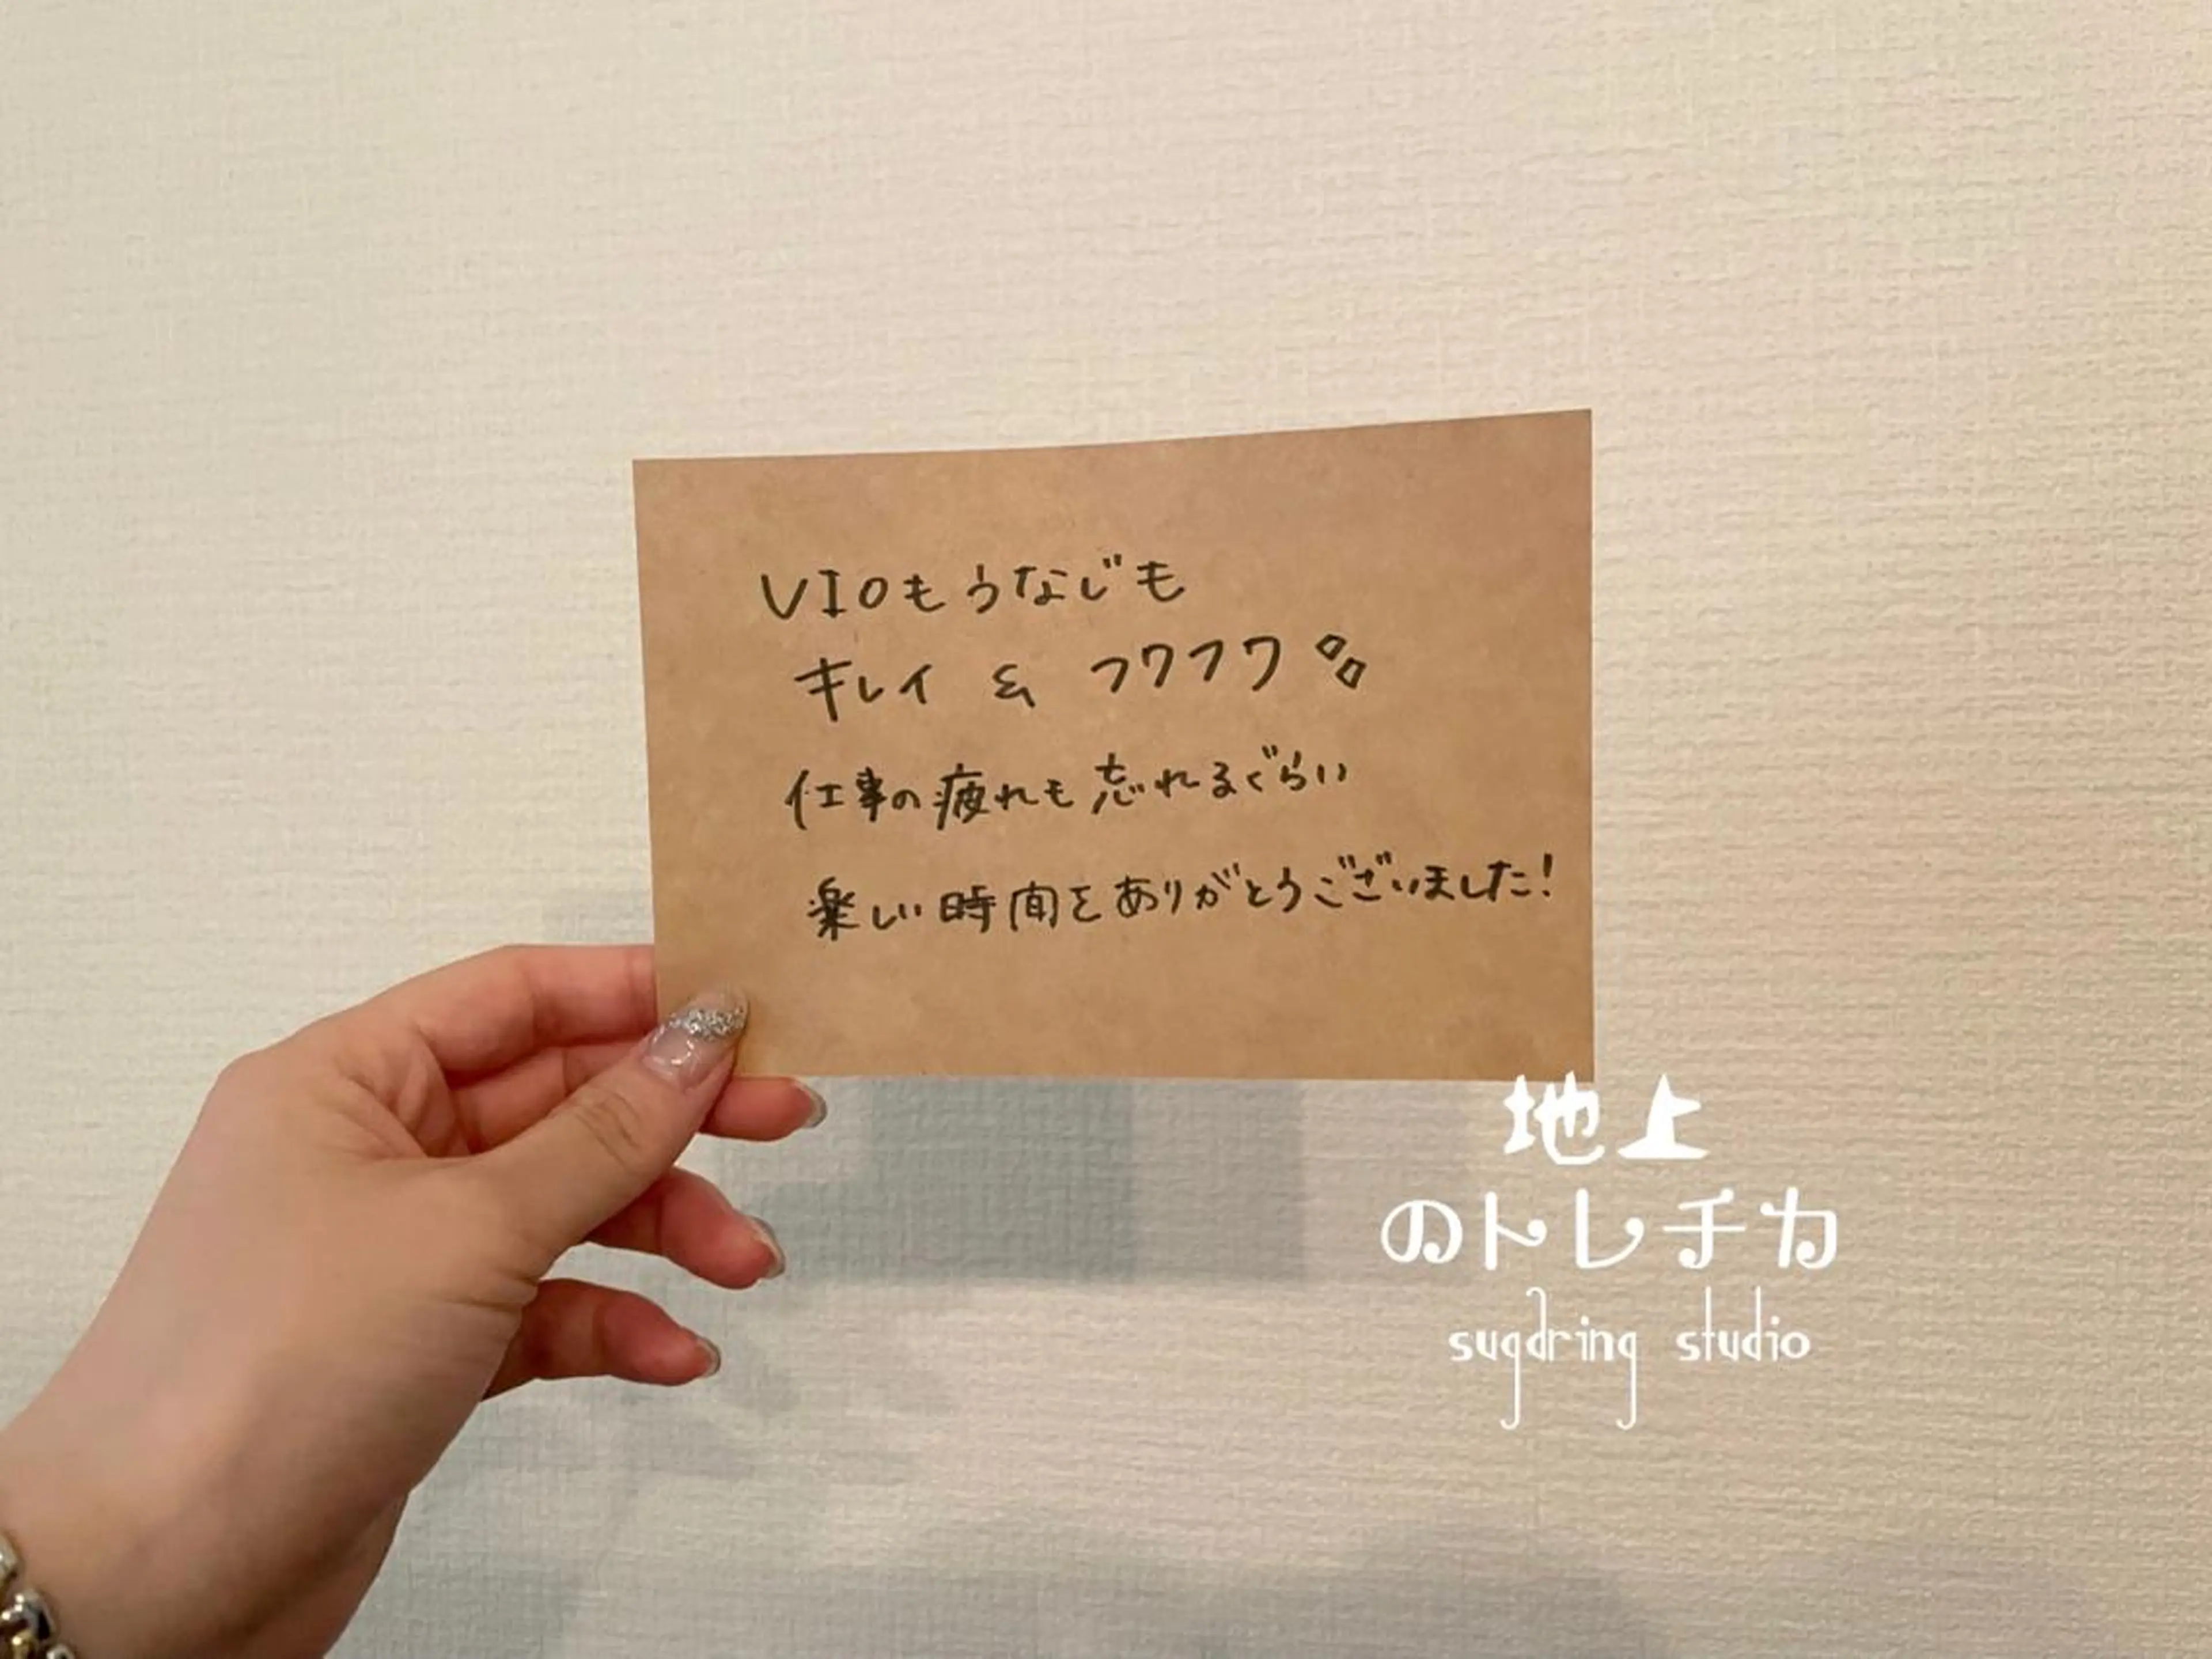 VIOもうなじも
キレイ & フワフワ
仕事の疲れも忘れるぐらい
楽しい時間をありがとうございました!
地上
のトレチカ
sugdring studio